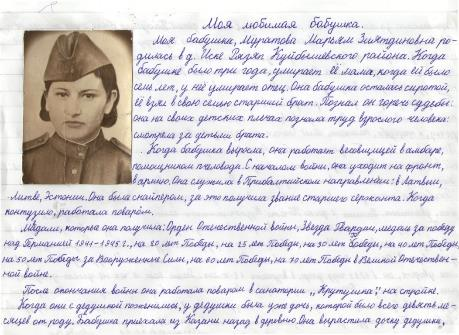 Моя любимая бабушка.
Моя бабушка, Муратова Марьям Зиятдиновна ро-
дилась в д. Иске Рязяп Куйбышевского района. Когда
бабушке было три года, умирает её мама, когда ей было
семь лет, у неё умирает отец. Она бабушка осталась сиротой,
её взял в свою семью старший брат. Познал он горечь судьбы:
она на своих детских плечах познала труд взрослого человека:
смотрела за детьми брата.
Когда бабушка выросла, она работает весовщицей в амбаре,
помощником пчеловода. С началом войны, она уходит на фронт,
в армию. Она служила в Прибалтийском направлении: в Латвии,
Литве, Эстонии. Она была снайпером, за это получила звание старшего сержанта. Когда
контузило, работала поваром.
Медали, которые она получила: Орден Отечественной войны, Звезда Гвардии, медали за победу
над Германией 1941-1945 г., на 20 лет Победы, на 25 лет Победы, на 30 лет Победы, на 40 лет Победы,
на 50 лет Победы, за Вооруженные Силы, на 60 лет Победы, на 70 лет Победы в Великой Отечествен-
ной войне.
После окончания войны она работала поваром в санатории „Крутушка", на стройке.
Когда они с дедушкой поженились, у дедушки была уже дочь, которой было всего девять ме-
сяцев от роду. Бабушка приехала из Казани назад в деревню. Она вырастила дочку дедушки,